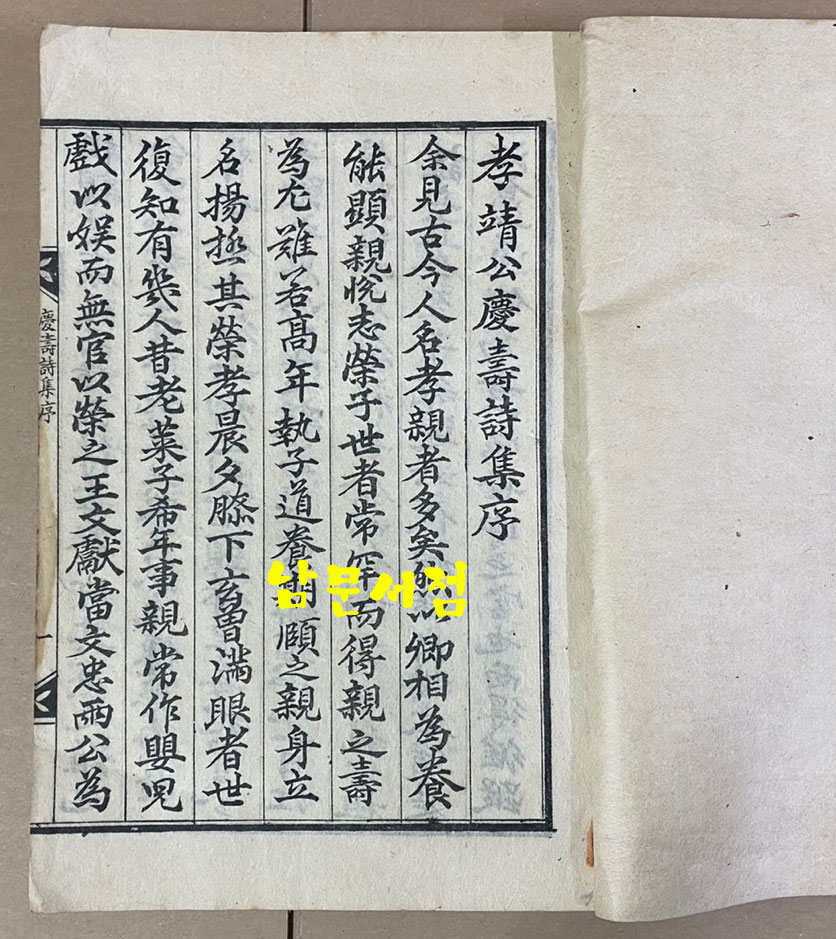 孝靖公慶壽詩集序
余見古今人名孝親者多矣然以卿相為養
能顯親悅志榮子世者常罕而得親之壽
為尤難若高年執子道養期頤之親身立
名揚極其榮孝晨夕膝下玄曾滿眼者世
復知有幾人昔老萊子希年事親常作嬰兒
戲以娛而無官以榮之王文獻當文忠兩公為
慶壽詩集序
一
남문서점